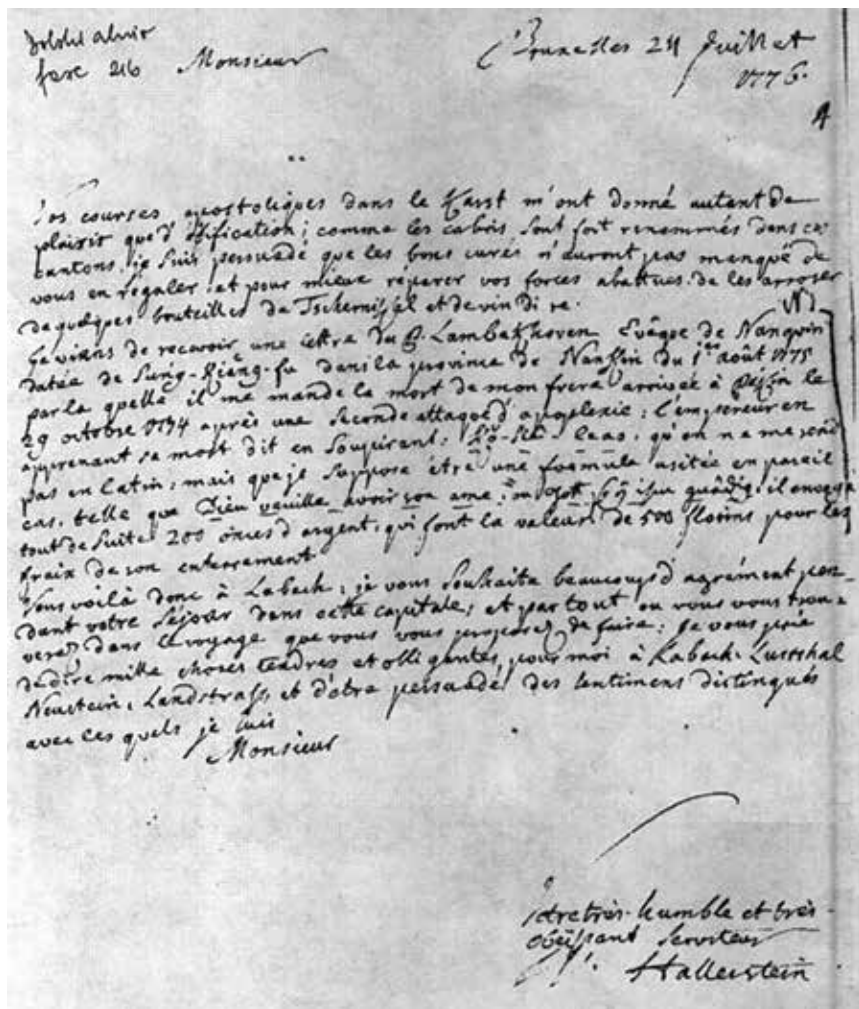 fasc 216 Monsieur
Bruxelles 24 Juillet
1776.
A
Vos courses apostoliques dans le Karst m'ont donné autent de
plaisir que d'édification; comme les cabris sont fort renommés dans ces
cantons, je suis persuadé que les bons curés n'auront pas manqué de
vous en régaler, et pour mieux réparer vos forces abattues de les arroser
de quelques bouteilles de Tschernikal et de vin di re.
Je viens de recevoir une lettre du P. Lambekhoven Evêque de Nanquin
datée de Sung-Kiang-fu dans la province de Nankin du 1er août 1775
par la quelle il me mande la mort de mon frere arrivée à Pékin le
29 octobre 1774 après une seconde attaque d'apoplexie: l'empereur en
apprenant sa mort dit en soupirant, qu'on ne me rend
pas en latin, mais que je suppose être une formule usitée en pareil
cas, telle que Dieu veuille avoir son ame, gott sey ihm gnädig, il envoya
tout de suite 200 onces d'argent, qui font la valeur de 500 florins pour les
fraix de son enterrement
Vous voilà donc à Labach, je vous souhaite beaucoup d'agrément pen-
dant votre séjour dans cette capitale, et partout ou vous vous trou-
verez dans le voyage que vous vous proposez de faire; je vous prie
de dire mille choses tendres et obligeantes pour moi à Labach, Lustthal
Neustein, Landstrass, et d'être persuadé des sentimens distingués
avec les quels je suis
Monsieur
Votre très-humble et très-
obéissant serviteur
Hallerstein